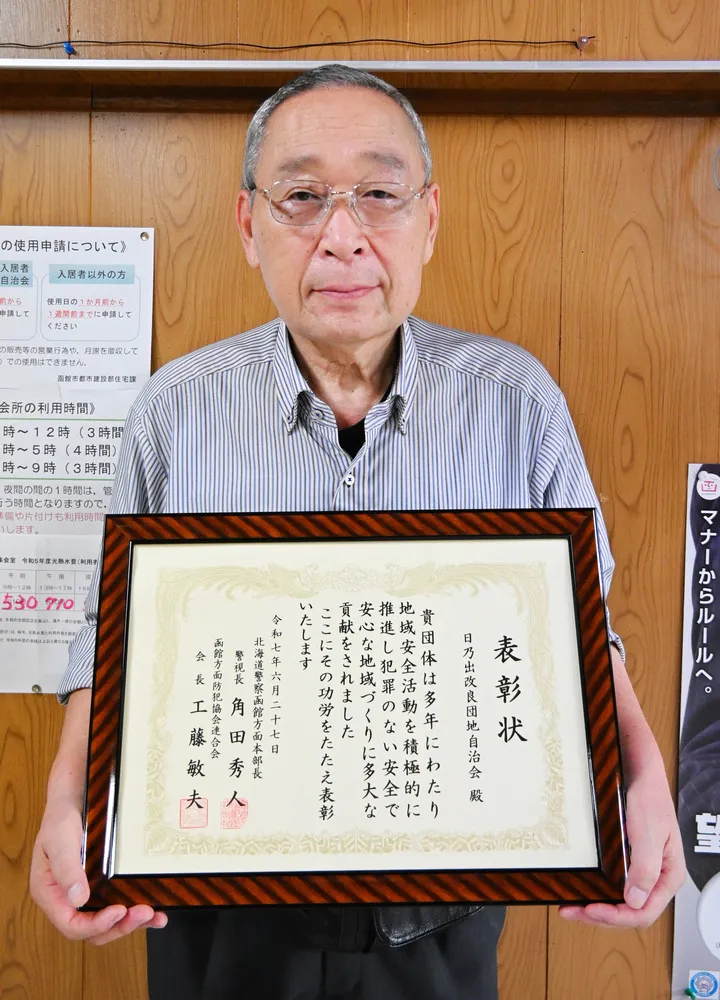 の使用申請について》
入居者
自治会
入居者以外の方
前から
申請して
使用日の１か月前から
１週間前までに申請して
ください
の販売等の営業行為や、月謝を徴収して
）での使用はできません。
函館市都市建設部住宅課
会所の利用時間》
時～１２時（３時間
時～５時（４時間）
時～９時（３時間）
夜間の間の１時間は、管
行う時間となりますので、
準備や片付けも利用時間
いします。
集会室　令和5年度光熱水費（利用者
午前　午後　夜
530 710
表彰状
日乃出改良団地自治会 殿
貴団体は多年にわたり
地域安全活動を積極的に
推進し犯罪のない安全で
安心な地域づくりに多大な
貢献をされました
ここにその功労をたたえ表彰
いたします
令和七年六月二十七日
北海道警察函館方面本部長
警視長 角田秀人
函館方面防犯協会連合会
会長 工藤敏夫
マナーからルールへ。
望